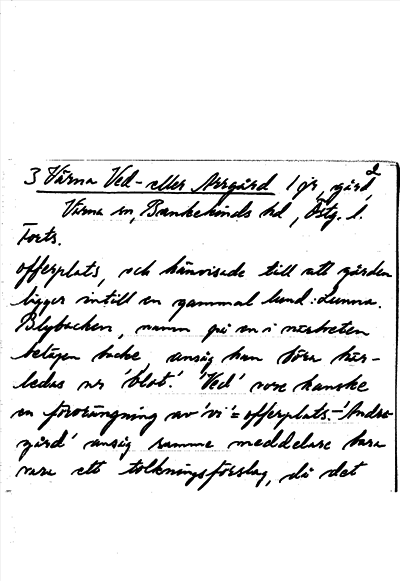 2
3 Värna Ved- eller Arrgård 1 gr, gård,
Värna sn, Bankekinds hd, Östg. l.
Forts.
offerplats, och hänvisade till att gården
ligger intill en gammal lund: Lunna.
Blybacken, namn på en i närheten
belägen backe, ansåg han böra här-
ledas ur 'blot'. 'Ved' vore kanske
en förvrängning av 'vi' = offerplats. –
gård' ansåg samme meddelare bara
vara ett tolkningsförslag, då det